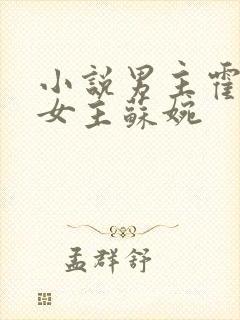 小說男主霍
女主蘇婉
孟群舒